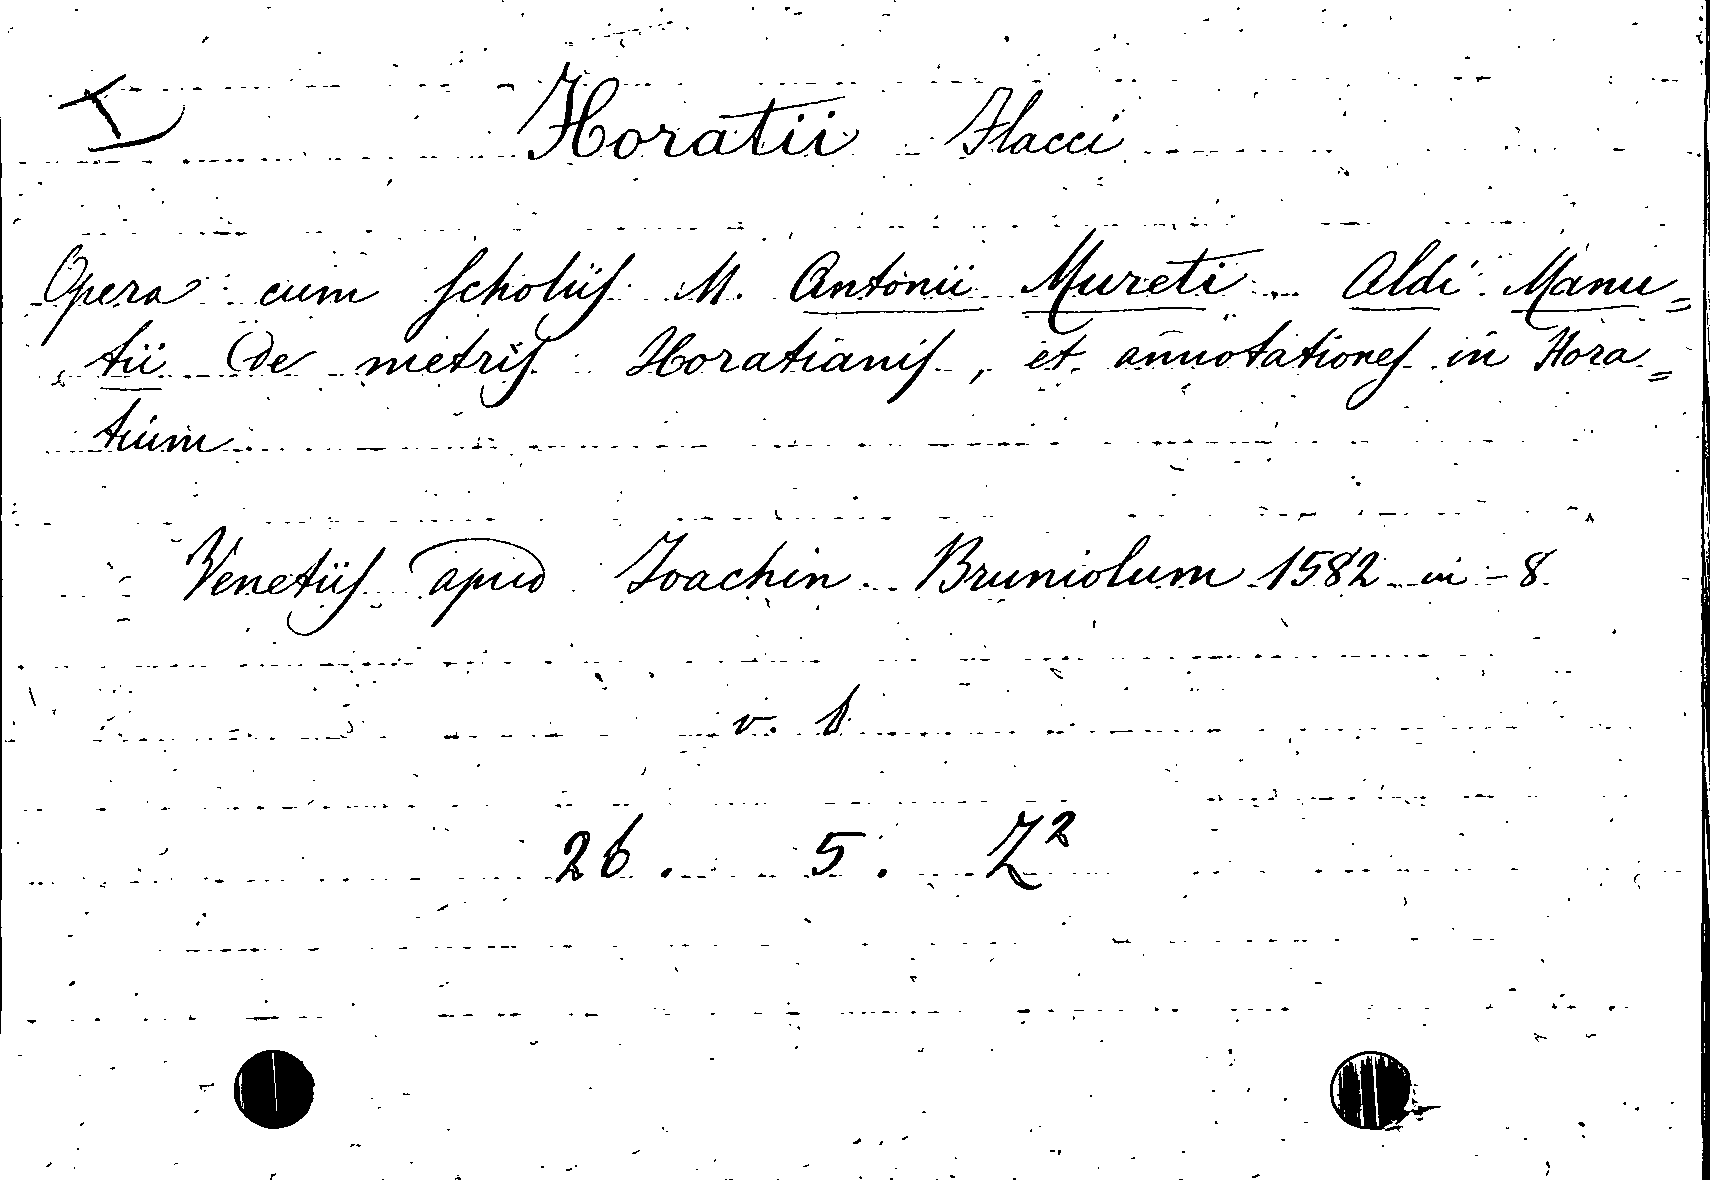 I
Horatii Flacci
Opera cum scholiis M. Antonii Mureti. Aldi Manu=
tii de metris Horatianis, et annotationes in Hora=
tium
Venetiis apud Joachin. Bruniolum 1582 in-8.
v. 1
26. 5. Z²